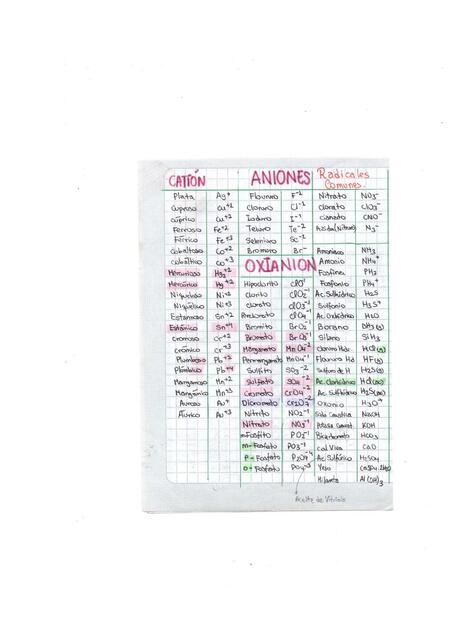 CATIÓN ANIONES Radicales Comunes.
Plata Ag+ Floururo F-1 Nitrato NO3-
Cuproso Cu+1 Cloruro Cl-1 clorato ClO3-
cúprico Cu+2 Ioduro I-1 cianato CNO-
Ferroso Fe+2 Teluro Te-2 N3-
Férrico Fe+3 Seleniuro Se-2
cobaltoso Co+2 Bromuro Br- Amoniaco NH3
cobáltico Co+3 OXIANION Amonio NH4+
Mercurioso Hg2+2 Fosfina PH3
Mercúrico Hg+2 Hipoclorito ClO- Fosfonio PH4+
Niqueloso Ni+2 Clorito ClO2- Ac. Sulfhídrico H2S
Niquélico Ni+3 clorato ClO3- Sulfonio H3S+
Estannoso Sn+2 Perclorato ClO4- Ac. Oxhídrico H2O
Estánico Sn+4 Bromito BrO2- Borano
cromoso Cr+2 Bromato BrO3-1 Silano SiH4
crómico Cr+3 Manganato MnO4-2 HCl(g)
Plumboso Pb+2 Permanganato MnO4-1 Floururo Hd HF(g)
Plúmbico Pb+4 Sulfito SO3-2 Sulfuro de H H2S(g)
Manganoso Mn+2 Sulfato SO4-2 Ac. Clorhídrico HCl(ac)
Mangánico Mn+3 Cromato CrO4-2 Ac. Sulfhídrico H2S(ac)
Auroso Au+ Dicromato Cr2O7-2 Oxonio H3O+
Áurico Au+3 Nitrito NO2-1 Soda Caustica NaOH
Nitrato NO3-1 Potasa Caust. KOH
m-Fosfito PO2-1 Bicarbonato HCO3
m-Fosfato PO3-1 cal Viva CaO
P-Fosfato P2O7-4 Ac. Sulfúrico H2SO4
O-Fosfato PO4-3 Yeso
Al(OH)3
Aceite de Vitriolo